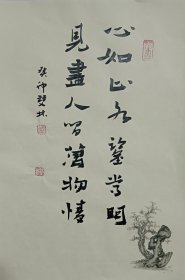 心如止水鑒常明
見盡人間萬物情
癸卯